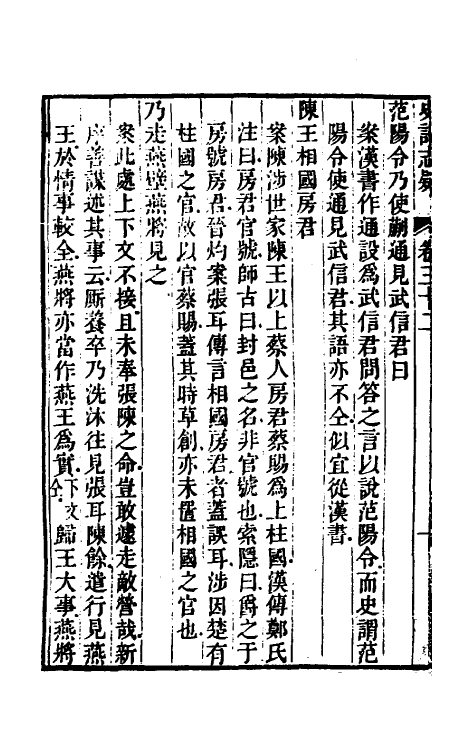 史記志疑 卷三十二
范陽令乃使蒯通見武信君曰
案漢書作通設爲武信君問答之言以說范陽令而史謂范
陽令使通見武信君其語亦不仝似宜從漢書
陳王相國房君
案陳涉世家陳王以上蔡人房君蔡賜爲上柱國漢傳鄭氏
注曰房君官號師古曰封邑之名非官號也索隱曰爵之于
房號房君晉灼案張耳傳言相國房君者蓋誤耳涉因楚有
柱國之官故以官蔡賜蓋其時草創亦未置相國之官也
乃走燕壁燕將見之
案此處上下文不接且未奉張陳之命豈敢遽走敵營哉新
序善謀述其事云厮養卒乃洗沐往見張耳陳餘遣行見燕
王於情事較全燕將亦當作燕王爲實下文仝歸王大事燕將